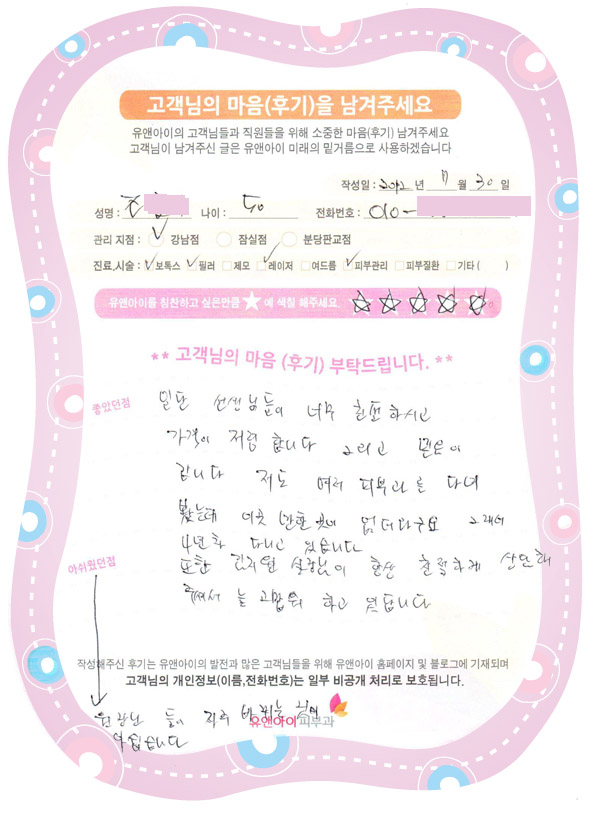 고객님의 마음(후기)을 남겨주세요
유앤아이의 고객님들과 직원들을 위해 소중한 마음(후기) 남겨주세요
고객님이 남겨주신 글은 유앤아이 미래의 밑거름으로 사용하겠습니다
작성일 : 2012 년 7 월 30 일
성명 : 나이 : 전화번호 : 010-
관리 지점 : 강남점 잠실점 분당판교점
진료,시술 : 보톡스 필러 제모 레이저 여드름 피부관리 피부질환 기타 ( )
유앤아이를 칭찬하고 싶은만큼 ★ 에 색칠 해주세요
** 고객님의 마음 (후기) 부탁드립니다. **
좋았던점
일단 선생님들이 너무 친절하시고
가격이 저렴 합니다 그리고 믿음이
갑니다 저도 여러 피부과를 다녀
봤는데 이곳 만한 곳이 없더라구요 그래서
4년차 다니고 있습니다
아쉬웠던점
또한 실장님이 항상 친절하게 상담해
주셔서 늘 고맙워 하고 있답니다
작성해주신 후기는 유앤아이의 발전과 많은 고객님들을 위해 유앤아이 홈페이지 및 블로그에 기재되며
고객님의 개인정보(이름,전화번호)는 일부 비공개 처리로 보호됩니다.
원장님 들이 자주 바뀌는 것이
아쉽습니다
유앤아이피부과